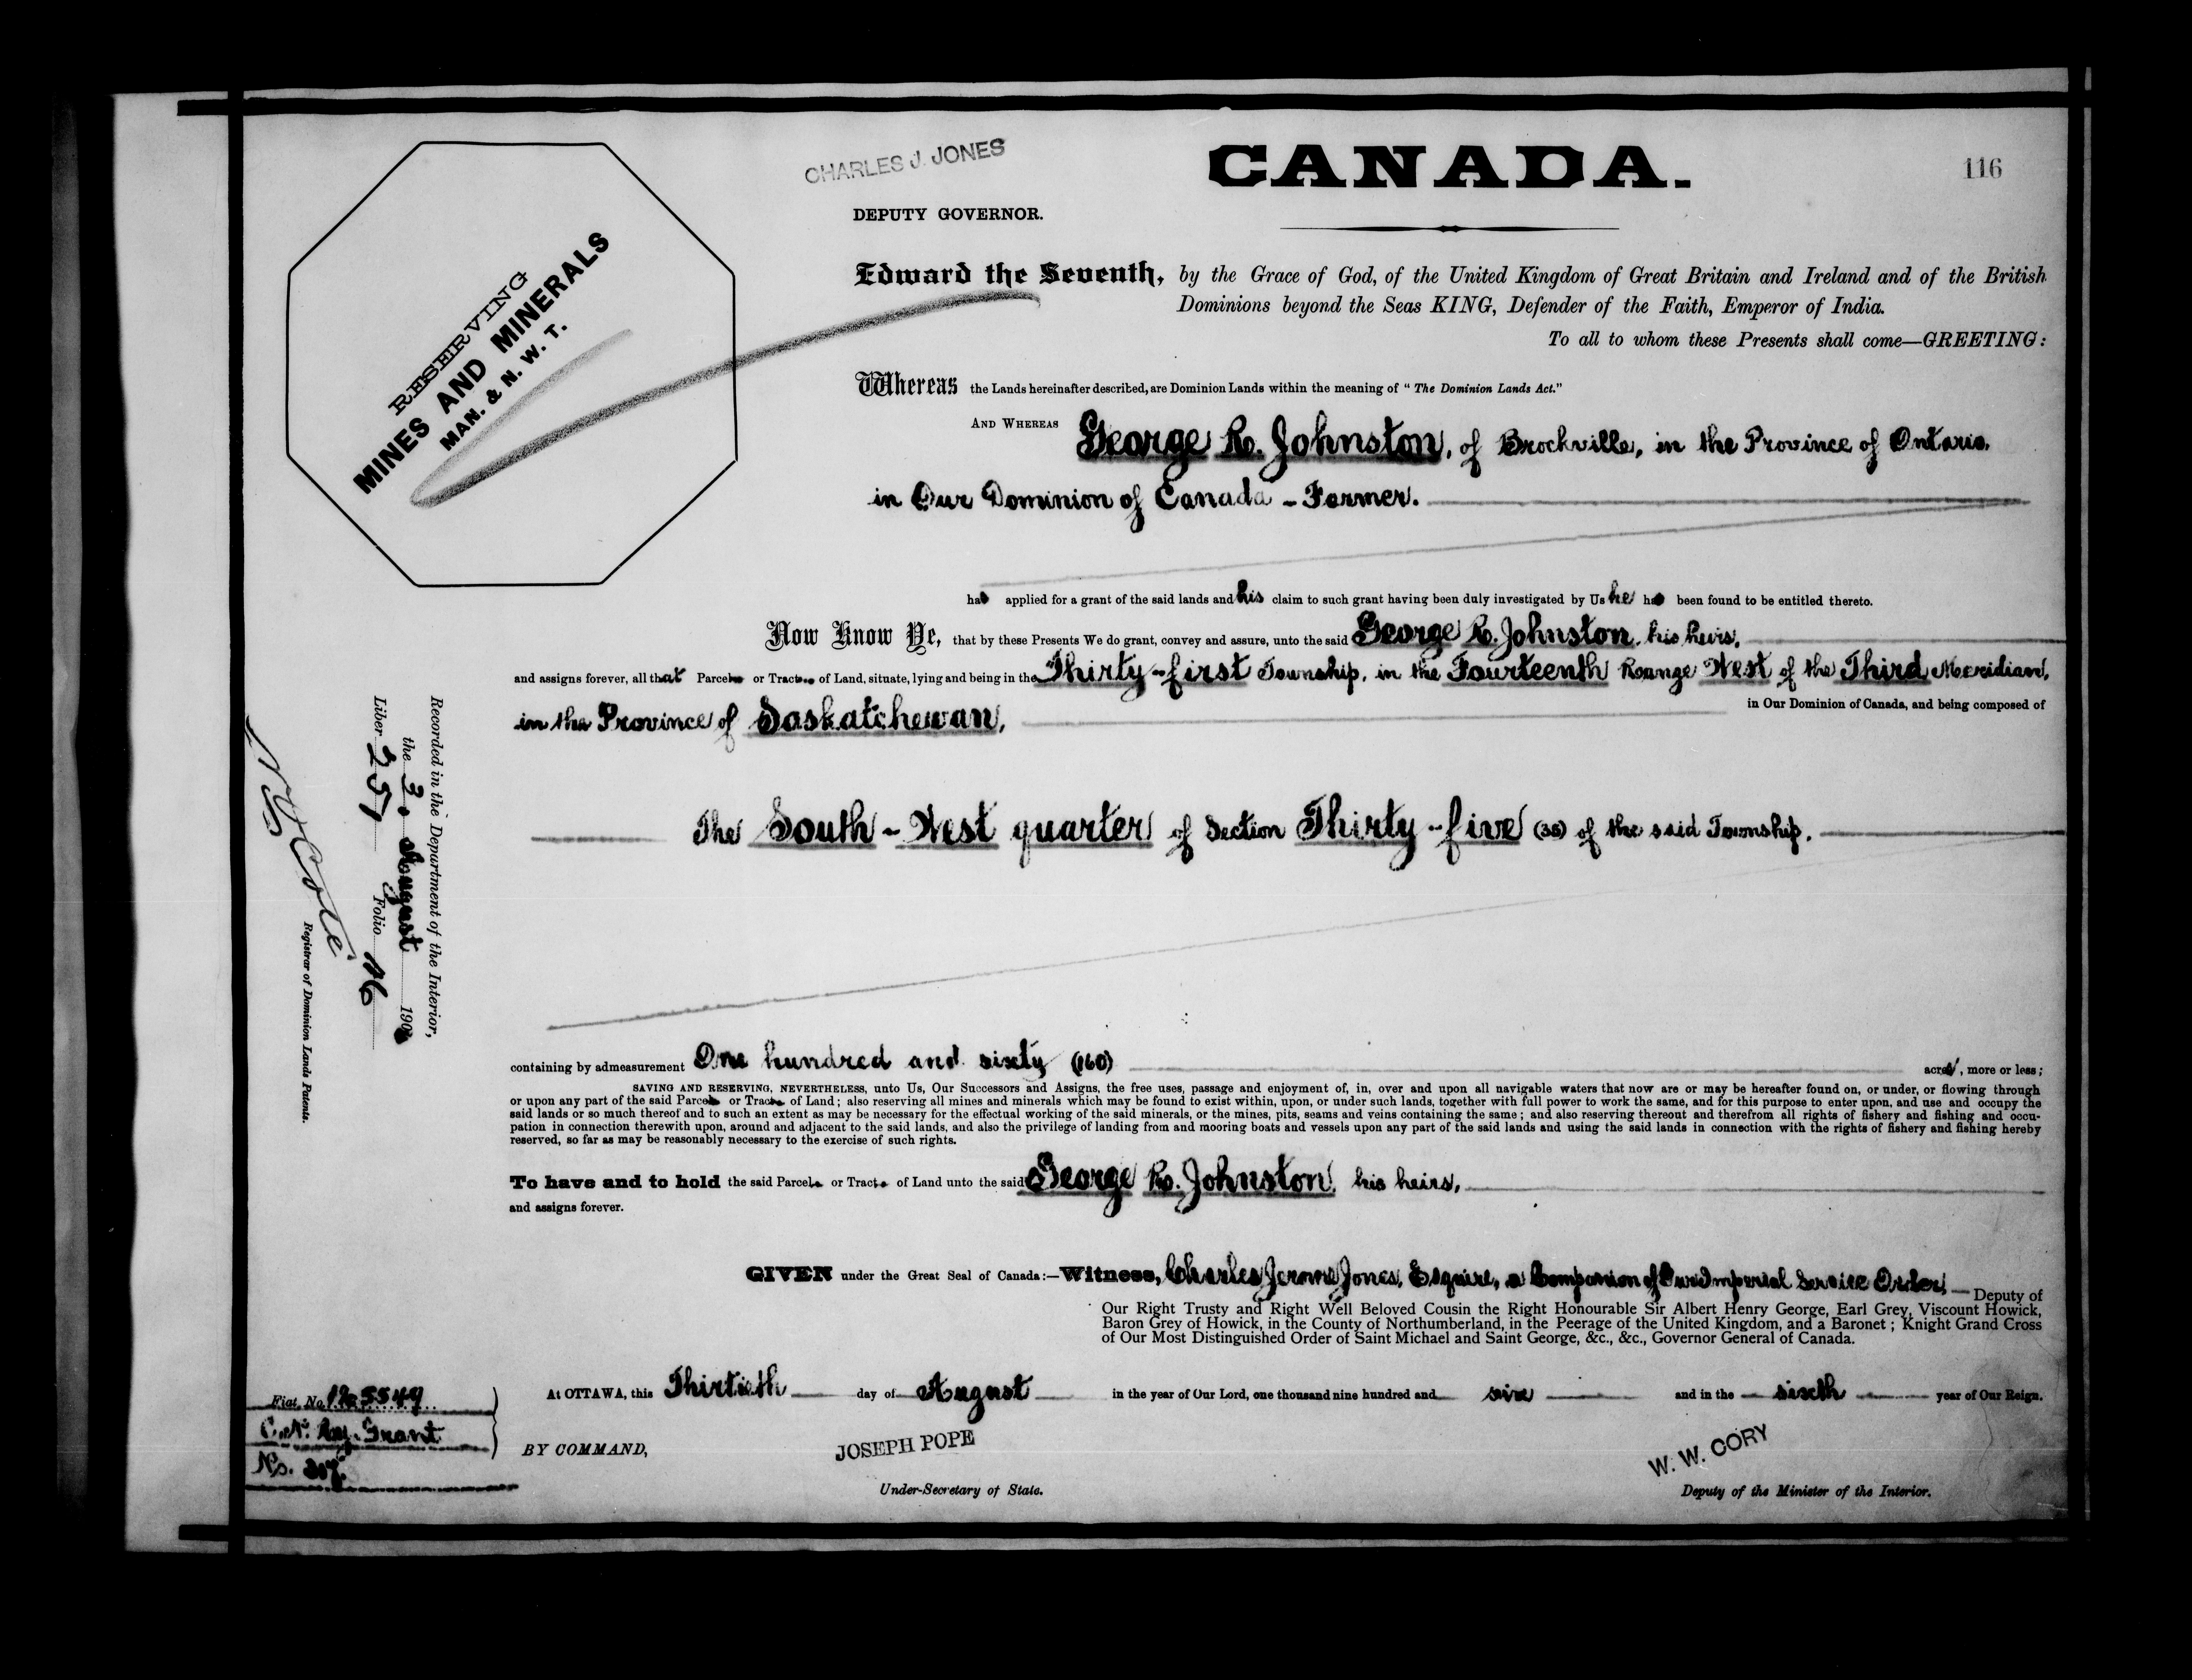 CHARLES J. JONES
CANADA.
116
DEPUTY GOVERNOR.
RESERVING
MINES AND MINERALS
MAN. & N. W. T.
Edward the Seventh, by the Grace of God, of the United Kingdom of Great Britain and Ireland and of the British
Dominions beyond the Seas KING, Defender of the Faith, Emperor of India.
To all to whom these Presents shall come—GREETING:
Whereas the Lands hereinafter described, are Dominion Lands within the meaning of "The Dominion Lands Act."
AND WHEREAS George R. Johnston, of Brockville, in the Province of Ontario,
in Our Dominion of Canada - Farmer.
has applied for a grant of the said lands and his claim to such grant having been duly investigated by Us he has been found to be entitled thereto.
Now Know Ye, that by these Presents We do grant, convey and assure, unto the said George R. Johnston, his heirs,
and assigns forever, all that Parcel or Tract of Land, situate, lying and being in the Thirty-first Township, in the Fourteenth Range West of the Third Meridian,
in the Province of Saskatchewan, in Our Dominion of Canada, and being composed of
The South-West quarter of Section Thirty-five (35) of the said Township.
Recorded in the Department of the Interior,
the August 190
Liber 257 Folio 116
N O Coté
Registrar of Dominion Lands Patents.
containing by admeasurement One hundred and sixty (160) acres, more or less;
SAVING AND RESERVING, NEVERTHELESS, unto Us, Our Successors and Assigns, the free uses, passage and enjoyment of, in, over and upon all navigable waters that now are or may be hereafter found on, or under, or flowing through
or upon any part of the said Parcel or Tract of Land; also reserving all mines and minerals which may be found to exist within, upon, or under such lands, together with full power to work the same, and for this purpose to enter upon, and use and occupy the
said lands or so much thereof and to such an extent as may be necessary for the effectual working of the said minerals, or the mines, pits, seams and veins containing the same; and also reserving thereout and therefrom all rights of fishery and fishing and occu-
pation in connection therewith upon, around and adjacent to the said lands, and also the privilege of landing from and mooring boats and vessels upon any part of the said lands and using the said lands in connection with the rights of fishery and fishing hereby
reserved, so far as may be reasonably necessary to the exercise of such rights.
To have and to hold the said Parcel or Tract of Land unto the said George R. Johnston, his heirs,
and assigns forever.
GIVEN under the Great Seal of Canada:—Witness, Charles Jerome Jones, Esquire, a Companion of Our Imperial Service Order, Deputy of
Our Right Trusty and Right Well Beloved Cousin the Right Honourable Sir Albert Henry George, Earl Grey, Viscount Howick,
Baron Grey of Howick, in the County of Northumberland, in the Peerage of the United Kingdom, and a Baronet; Knight Grand Cross
of Our Most Distinguished Order of Saint Michael and Saint George, &c., &c., Governor General of Canada.
At OTTAWA, this Thirtieth day of August in the year of Our Lord, one thousand nine hundred and six and in the sixth year of Our Reign.
Fiat No.
C. N. Ry. Grant
No. 207.
BY COMMAND,
JOSEPH POPE
Under-Secretary of State.
W. W. CORY
Deputy of the Minister of the Interior.